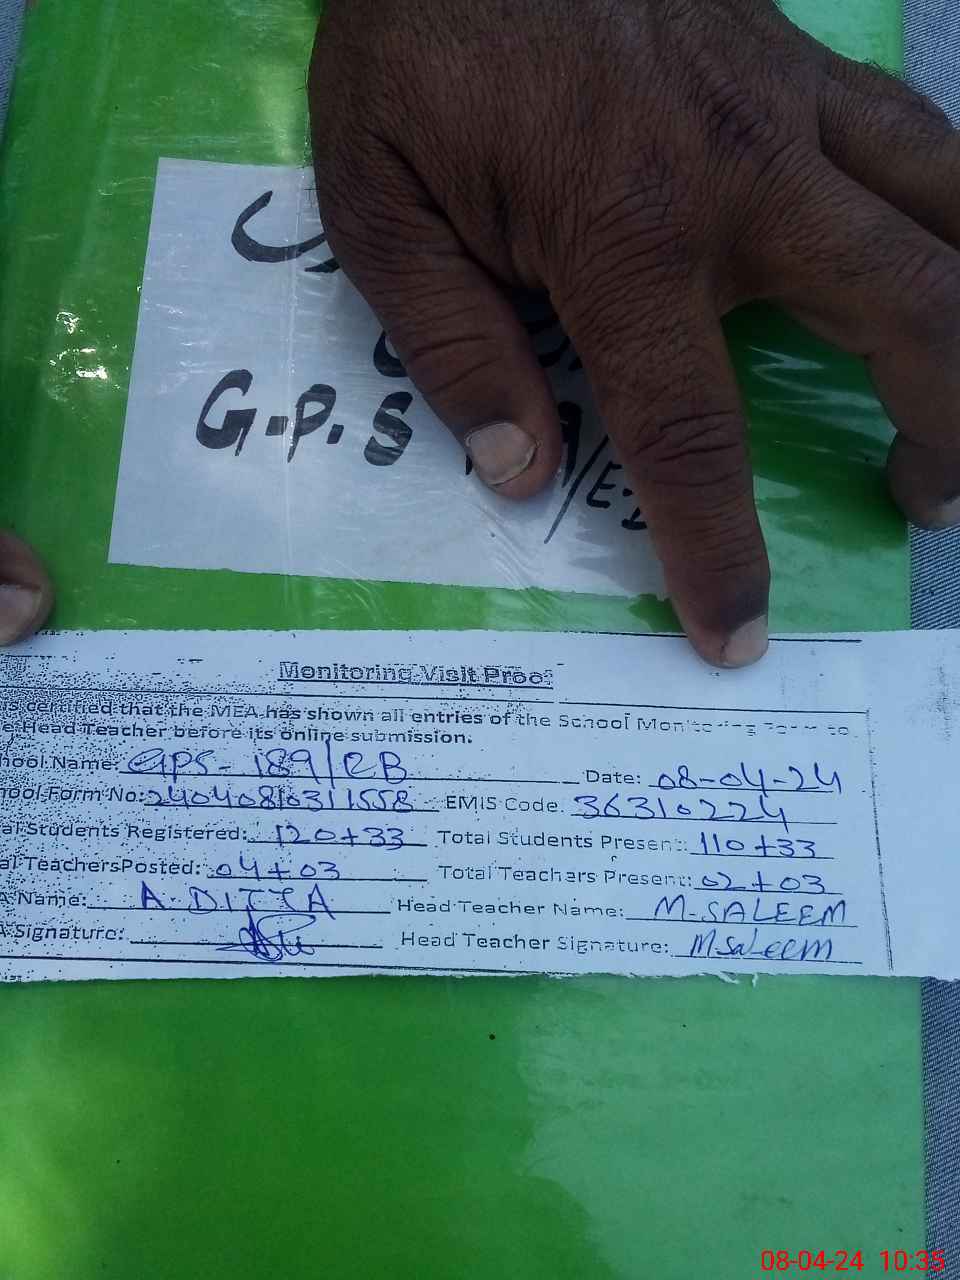 G.P.S
Monitoring Visit Proof
is certified that the MEA has shown all entries of the School Monitoring Form to
e Head Teacher before its online submission.
hool Name: GPS-189/RB Date: 08-04-24
hool Form No: 24040810311558 EMIS Code 36310224
al Students Registered: 120+33 Total Students Present: 110+33
al TeachersPosted: 04+03 Total Teachers Present: 02+03
A Name: A.DITTA Head Teacher Name: M-SALEEM
A Signature: Head Teacher Signature: M-Saleem
08-04-24 10:35